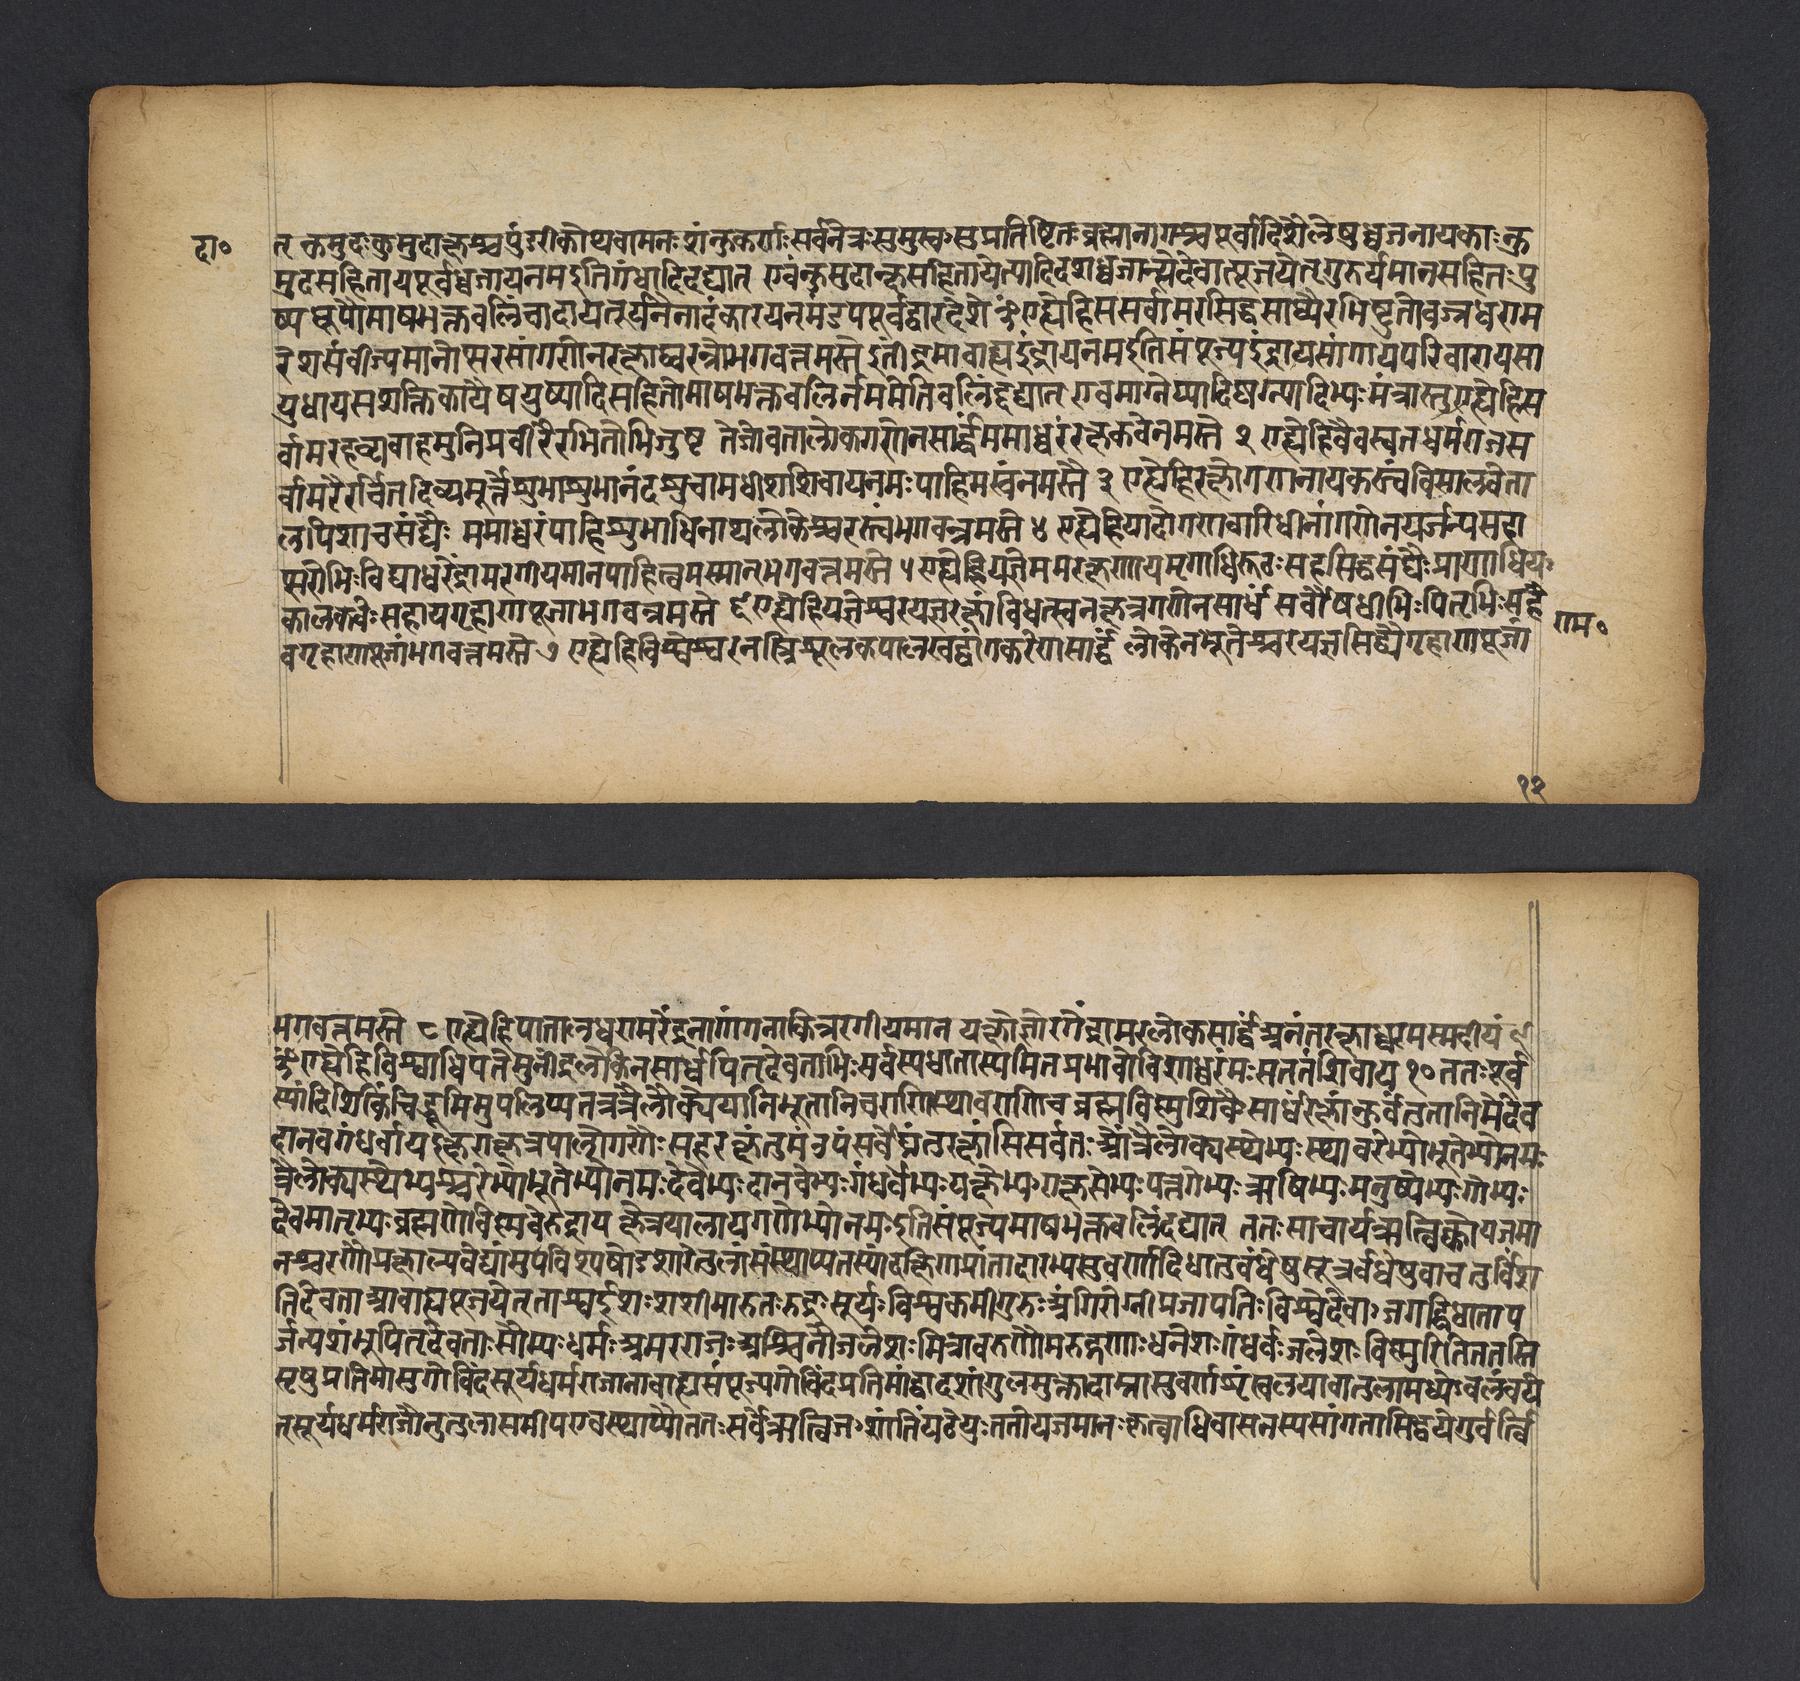 दा०
त् कुमुदः कुमुदाक्षश्च पुंडरीकोथ वामनः शंकुकर्णः सर्वनेत्रः सुमुखः सुप्रतिष्ठितः ब्रह्मानागश्च पूर्वादिशैलेषु ध्वजनायकाः कु
मुदसहिताय पूर्वध्वजायनम इति गंधादि दद्यात् एवं कुमुदाक्षसहितायेत्यादि दशध्वजान् देवात् पूजयेत् गुरुर्यजमानसहितः पु
ष्पधूपौ माषभक्तबलिं चादाय तूर्यनिनादं कारयन् मंडपपूर्वद्वारदेशे ॐ एह्येहि ससर्वामरसिद्धसाध्यैरभिष्टुतो वज्रधरामरे
रेश संवीज्यमानोप्सरसां गणेन रक्षाध्वरन्नो भगवन्नमस्ते इतींद्रमावाह्य इंद्राय नम इति संपूज्य इंद्राय सांगाय परिवाराय सा
युधाय सशक्तिकायैष पुष्पादिसहितो माषभक्तबलिर्न ममेति बलिं दद्यात् एवमाग्नेय्यादिष्वग्न्यादिभ्यः मंत्रास्तु एह्येहि स
र्वामरहव्यवाह मुनिप्रवीरैरभितोभिजुष्ट तेजोवता लोकगणेन सार्द्धं ममाध्वरं रक्ष कवे नमस्ते २ एह्येहि वैवस्वत धर्मराज स
र्वामरैरर्चित दिव्यमूर्त्ते शुभाशुभानंद शुचामधीश शिवाय नमः पाहि मखं नमस्ते ३ एह्येहि रक्षोगणनायकस्त्वं विसालवेता
लपिशाचसंघैः ममाध्वरं पाहि शुभाधिनाथ लोकेश्वरस्त्वं भगवन्नमस्ते ४ एह्येहि यादोगणवारिधीनां गणेन पर्जन्य सहा
प्सरोभिः विद्याधरेंद्रामरगीयमान पाहि त्वमस्मान् भगवन्नमस्ते ५ एह्येहि यज्ञे मम रक्षणाय मृगाधिरूढः सह सिद्धसंघैः प्राणाधिपः
कालकवेः सहाय गृहाण पूजां भगवन्नमस्ते ६ एह्येहि यज्ञेश्वर यज्ञरक्षां विधत्स्व नक्षत्रगणेन सार्धं सर्वौषधीभिः पितृभिः सहै
राम०
व गृहाण पूजां भगवन्नमस्ते ७ एह्येहि विश्वेश्वर नस्त्रिशूलकपालखट्वांगकरेण सार्द्धं लोकेन भूतेश्वर यज्ञसिद्ध्यै गृहाण पूजां
१२
भगवन्नमस्ते ८ एह्येहि पातालधरामरेंद्र नागांगनाकिन्नरगीयमान यक्षोरगेंद्रामरलोकसार्द्धं अनंत रक्षाध्वरमस्मदीयं ९
ॐ एह्येहि विश्वाधिपते सुनींद्र लोकेन सार्धं पितृदेवताभिः सर्वस्य धातास्यमितप्रभावो विशाध्वरंमः सततं शिवाय १० ततः पूर्व
स्यां दिशि किंचिद्भूमिमुपलिप्य तत्र त्रैलोक्ये यानि भूतानि चराणि स्थावराणि च ब्रह्मविस्मुशिवैः सार्धं रक्षां कुर्वंतु तानि मे देव
दानवगंधर्वा यक्षराक्षसपन्नगाः सह रक्षंतु मंडपं सर्वे घ्नंतु रक्षांसि सर्वतः ॐ त्रैलोक्यस्थेभ्यः स्थावरेभ्यो भूतेभ्यो नमः
त्रैलोक्यस्थेभ्यश्चरेभ्यो भूतेभ्यो नमः देवेभ्यः दानवेभ्यः गंधर्वेभ्यः यक्षेभ्यः राक्षसेभ्यः पन्नगेभ्यः ऋषिभ्यः मनुष्येभ्यः गोभ्यः
देवमातृभ्यः ब्रह्मणे विस्मवे रुद्राय क्षेत्रपालाय गणेभ्यो नमः इति संपूज्य माषभक्तबलिं दद्यात् ततः साचार्य ऋत्विक्को यजमा
नश्चरणौ प्रक्षाल्य वेद्यामुपविश्य षोडशारे तुलां संस्थाप्य तस्यां दक्षिणप्रांतादारभ्य सुवर्णादिधातुबंधेषु सूत्रबंधेषु वा चतुर्विंश
तिदेवता आवाह्य पूजयेत् ताश्च ईशः शशी मारुतः रुद्रः सूर्यः विश्वकर्मा गुरुः अंगिरोग्नी प्रजापतिः विश्वेदेवाः जगद्विधाता प
र्जन्यशंभू पितृदेवताः सौम्यः धर्मः अमरराजः अश्विनौ जलेशः मित्रावरुणौ मरुद्गणाः धनेशः गंधर्वः जलेशः विस्मुरिति ततस्ति
सृषु प्रतिमासु गोविंदसूर्यधर्मराजानावाह्य संपूज्य गोविंदप्रतिमां द्वादशांगुलमुक्तादाम्ना सुवर्णशृंखलया वा तुलामध्येवलंबये
त् सूर्यधर्मराजौ तु तुलासमीप एव स्थाप्यौ ततः सर्वे ऋत्विजः शांतिं पठेयुः ततो यजमानः कृत्वाधिवासनस्य सांगतासिद्धये गुर्वर्त्वि